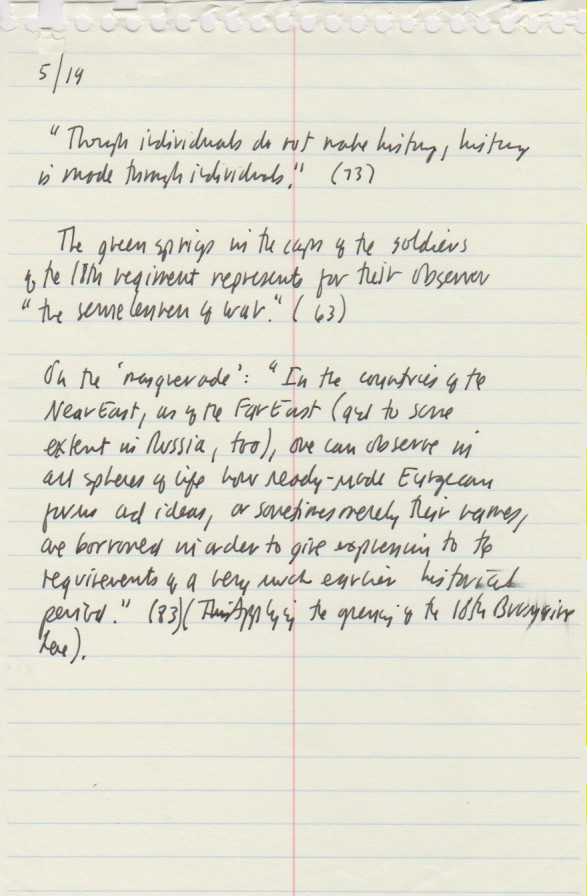 5/19
"Though individuals do not make history, history
is made through individuals." (73)
The green sprigs in the caps of the soldiers
of the 18th regiment represents for their observer
"the semelenven of war." (63)
On the 'masquerade': "In the countries of the
Near East, as of the Far East (and to some
extent in Russia, too), one can observe in
all spheres of life how ready-made European
forms and ideas, or sometimes merely their names,
are borrowed in order to give expression to the
requirements of a very much earlier historical
period." (83) (Applying the opening of the 18th Brumaire
here).